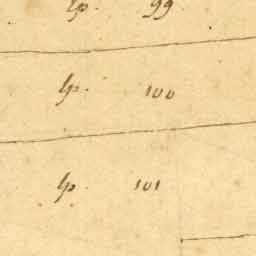 lp. 99
lp. 100
lp. 101